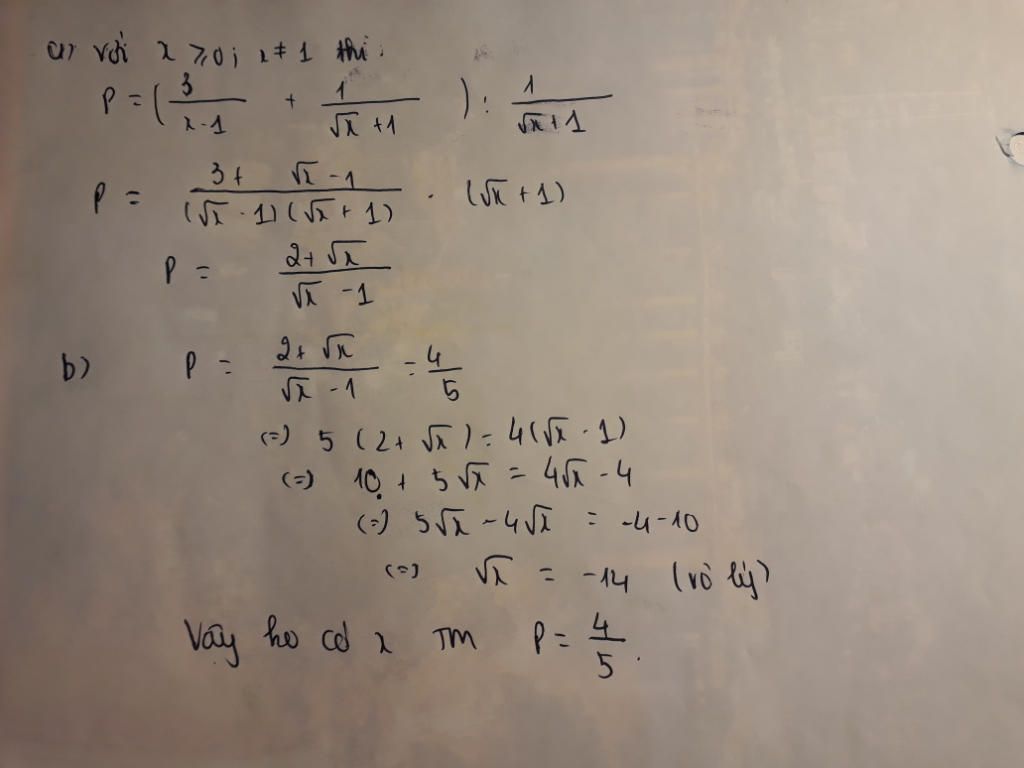 a) với x ⩾ 0; x ≠ 1 thì:
P = ( 3/(x-1) + 1/(√x +1) ) : 1/(√x+1)
P = (3+ √x -1)/((√x - 1)(√x + 1)) . (√x + 1)
P = (2+ √x)/(√x -1)
b) P = (2+ √x)/(√x -1) = 4/5
(=) 5 (2+ √x) = 4(√x - 1)
(=) 10 + 5√x = 4√x - 4
(=) 5√x - 4√x = -4-10
(=) √x = -14 (vô lý)
Vậy ko có x TM P = 4/5.